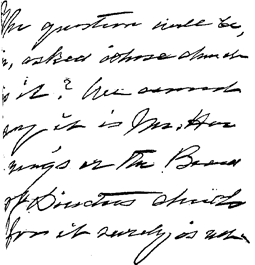 The question will be,
, asked whose church
is it? We cannot
say it is Mr. Han
ning's or The Board
of Directors church
for it surely is not